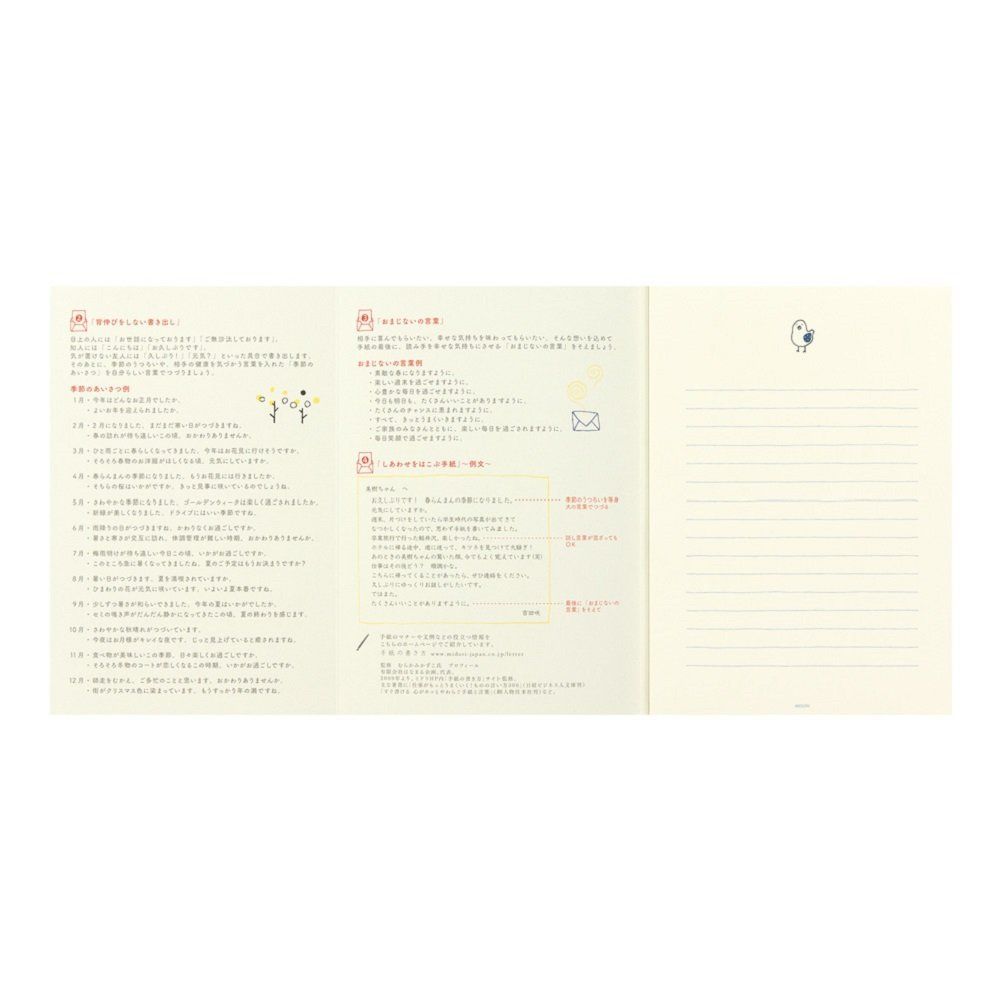 2 「背伸びをしない書き出し」
目上の人には「お世話になっております」「ご無沙汰しております」、
知人には「こんにちは」「お久しぶりです」、
気が置けない友人には「久しぶり!」「元気?」といった具合で書き出します。
そのあとに、季節のうつろいや、相手の健康を気づかう言葉を入れた「季節の
あいさつ」を自分らしい言葉でつづりましょう。
季節のあいさつ例
1月・今年はどんなお正月でしたか。
・よいお年を迎えられましたか。
2月・2月になりました、まだまだ寒い日がつづきますね。
・春の訪れが待ち遠しいこの頃、おかわりありませんか。
3月・ひと雨ごとに春らしくなってきました、今年はお花見に行けそうですか。
・そろそろ春物のお洋服がほしくなる頃、元気にしていますか。
4月・春らんまんの季節になりました、もうお花見には行きましたか。
・そちらの桜はいかがですか、きっと見事に咲いているのでしょうね。
5月・さわやかな季節になりました、ゴールデンウィークは楽しく過ごされましたか。
・新緑が美しくなりました、ドライブにはいい季節ですね。
6月・雨降りの日がつづきますね、かわりなくお過ごしですか。
・暑さと寒さが交互に訪れ、体調管理が難しい時期、おかわりありませんか。
7月・梅雨明けが待ち遠しい今日この頃、いかがお過ごしですか。
・このところ急に暑くなってきましたね、夏のご予定はもうお決まりですか?
8月・暑い日がつづきます、夏を満喫されていますか。
・ひまわりの花が元気に咲いています、いよいよ夏本番ですね。
9月・少しずつ暑さが和らいできました、今年の夏はいかがでしたか。
・セミの鳴き声がだんだん静かになってきたこの頃、夏の終わりを感じます。
10月・さわやかな秋晴れがつづいています。
・今夜はお月様がキレイな夜です、じっと見上げていると癒されますね。
11月・食べ物が美味しいこの季節、日々楽しくお過ごしですか。
・そろそろ冬物のコートが恋しくなるこの時期、いかがお過ごしですか。
12月・師走をむかえ、ご多忙のことと思います、おかわりありませんか。
・街がクリスマス色に染まっています、もうすっかり年の瀬ですね。
3 「おまじないの言葉」
相手に喜んでもらいたい、幸せな気持ちを味わってもらいたい、そんな想いを込めて
手紙の最後に、読み手を幸せな気持ちにさせる「おまじないの言葉」をそえましょう。
おまじないの言葉例
・素敵な春になりますように。
・楽しい週末を過ごせますように。
・心豊かな毎日を過ごせますように。
・今日も明日も、たくさんいいことがありますように。
・たくさんのチャンスに恵まれますように。
・すべて、きっとうまくいきますように。
・ご家族のみなさんとともに、楽しい毎日を過ごされますように。
・毎日笑顔で過ごせますように。
4 「しあわせをはこぶ手紙」〜例文〜
美樹ちゃん へ
お久しぶりです! 春らんまんの季節になりました。
元気にしていますか。
週末、片づけをしていたら学生時代の写真が出てきて
なつかしくなったので、思わず手紙を書いてみました。
卒業旅行で行った軽井沢、楽しかったね。
ホテルに帰る途中、道に迷って、キツネを見つけて大騒ぎ!
あのときの美樹ちゃんの驚いた顔、今でもよく覚えています(笑)
仕事はその後どう? 順調かな。
こちらに帰ってくることがあったら、ぜひ連絡をください。
久しぶりにゆっくりお話しがしたいです。
ではまた。
たくさんいいことがありますように。
吉田咲
季節のうつろいを等身
大の言葉でつづる
話し言葉が混ざっても
OK
最後に「おまじないの
言葉」をそえて
手紙のマナーや文例などの役立つ情報を
こちらのホームページでご紹介しています。
手紙の書き方 www.midori-japan.co.jp/letter
監修 むらかみかずこ氏 プロフィール
有限会社はなまる企画、代表。
2009年より、ミドリHP内「手紙の書き方」サイト監修。
MIDORI